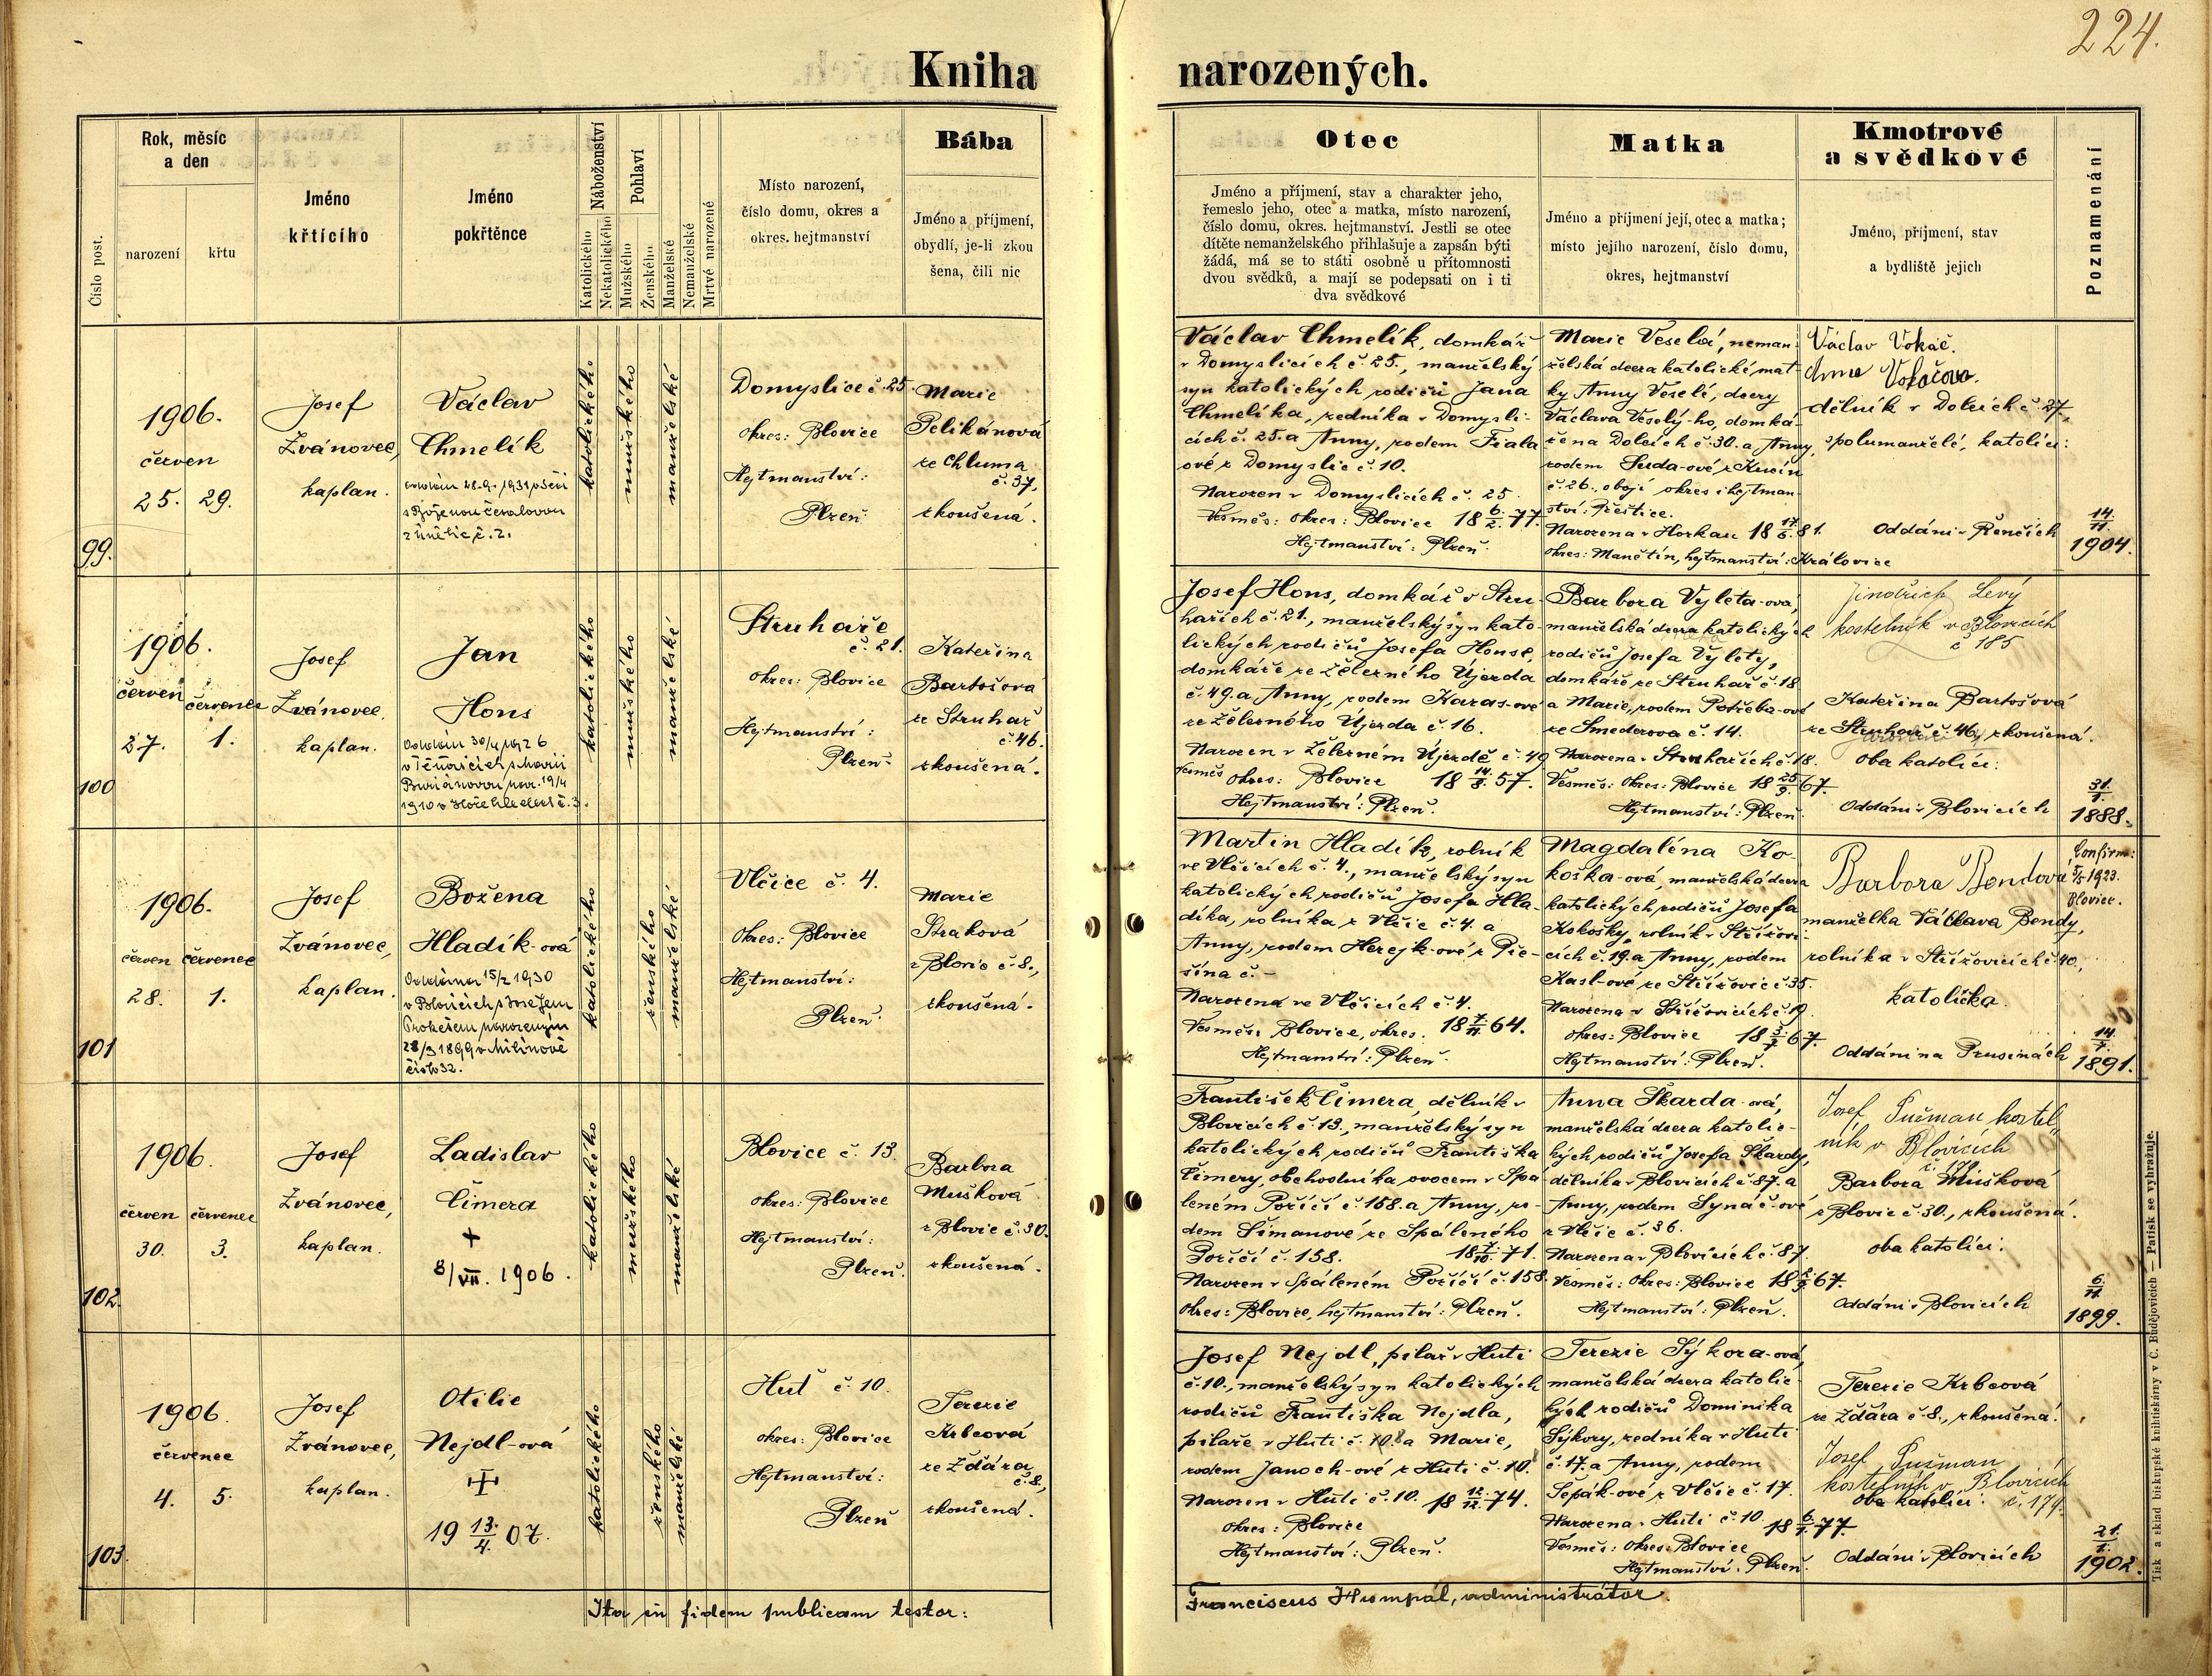 224.
Kniha narozených.
Číslo post.
Rok, měsíc
a den
narození
křtu
Jméno
křtícího
Jméno
pokřtěnce
Náboženství
Katolického
Nekatolického
Pohlaví
Mužského
Ženského
Manželské
Nemanželské
Mrtvé narozené
Místo narození,
číslo domu, okres a
okres. hejtmanství
Bába
Jméno a příjmení,
obydlí, je-li zkou
šena, čili nic
Otec
Jméno a příjmení, stav a charakter jeho,
řemeslo jeho, otec a matka, místo narození,
číslo domu, okres. hejtmanství. Jestli se otec
dítěte nemanželského přihlašuje a zapsán býti
žádá, má se to státi osobně u přítomnosti
dvou svědků, a mají se podepsati on i ti
dva svědkové
Matka
Jméno a příjmení její, otec a matka;
místo jejího narození, číslo domu,
okres, hejtmanství
Kmotrové
a svědkové
Jméno, příjmení, stav
a bydliště jejich
Poznamenání
99.
1906.
červen
25. 29.
Josef
Zvánovec,
kaplan.
Václav
Chmelík
s Boženou
z Únětic č. 2.
katolického
mužského
manželské
Domyslice č. 25.
okres: Blovice
Hejtmanství:
Plzeň.
Marie
Pelikánová
ze Chluma
č. 37,
zkoušená.
Václav Chmelík, domkář
v Domyslicích č. 25., manželský
syn katolických rodičů Jana
Chmelíka, zedníka v Domysli-
cích č. 25. a Anny, rodem Fiala
ové z Domyslic č. 10.
Narozen v Domyslicích č. 25.
Vesměs: okres: Blovice 18 6/2. 77.
Hejtmanství: Plzeň.
Marie Veselá, neman-
želská dcera katolické mat
ky Anny Veselé, dcery
Václava Veselý-ho, domká-
ře na Dolcích č. 30. a Anny,
rodem Suda-ové z Kucín
č. 26., obojí okres i hejtman-
ství: Přeštice.
Narozena v Horkau 18 17/6. 81.
okres: Manětín, hejtmanství: Královice
Václav Vokáč.
Anna Vokáčova.
dělník v Dolcích č. 27,
spolumanželé, katolíci:
Oddáni v Řenčích
14/11.
1904.
100
1906.
červen červenec
27. 1.
Josef
Zvánovec,
kaplan.
Jan
Hons
Oddán 30/4 1926
1910 v č. 3.
katolického
mužského
manželské
Struhaře
č. 21.
okres: Blovice
Hejtmanství:
Plzeň.
Kateřina
Bartošová
ze Struhař
č. 46.
zkoušená.
Josef Hons, domkář v Stru-
hařích č. 21., manželský syn kato-
lických rodičů Josefa Honse,
domkáře ze Železného Újezda
č. 49. a Anny, rodem Karas-ové
ze Železného Újezda č. 16.
Narozen v Železném Újezdě č. 49
Vesměs okres: Blovice 18 14/8. 57.
Hejtmanství: Plzeň.
Barbora Vyleta-ová,
manželská dcera katolických
rodičů Josefa Vylety,
domkáře ze Struhař č. 18
a Marie, rodem Potřeba-ové
ze Smederova č. 14.
Narozena v Struhařích č. 18.
Vesměs: okres: Blovice 18 25/9. 67.
Hejtmanství: Plzeň.
Jindřich Levý
kostelník v Blovicích
č 185
Kateřina Bartošová
ze Struhař č. 46, zkoušená.
oba katolíci:
Oddáni v Blovicích
31/1.
1888.
101
1906.
červen červenec
28. 1.
Josef
Zvánovec,
kaplan.
Božena
Hladík-ová
Oddána 15/2 1930
v Blovicích s Josefem
Prokešem narozeným
28/3 1899 v Milínově
číslo 32.
katolického
ženského
manželské
Vlčice č. 4.
okres: Blovice
Hejtmanství:
Plzeň.
Marie
Straková
z Blovic č. 8.,
zkoušená.
Martin Hladík, rolník
ve Vlčicích č. 4., manželský syn
katolických rodičů Josefa Hla-
díka, rolníka z Vlčic č. 4. a
Anny, rodem Herejk-ové z Ple-
šína č. -
Narozena ve Vlčicích č. 4.
Vesměs: Blovice, okres. 18 7/11. 64.
Hejtmanství: Plzeň.
Magdaléna Ko-
koška-ová, manželská dcera
katolických rodičů Josefa
Kokošky, rolník v Střížovi-
cích č. 19. a Anny, rodem
Kasl-ové ze Střížovic č. 35.
Narozena v Střížovicích č. 19.
okres: Blovice 18 3/7. 67.
Hejtmanství: Plzeň.
Barbora Bendova
manželka Václava Bendy,
rolníka v Střížovicích č. 40.,
katolička.
Oddáni na Prusinách
Confirm:
1923.
Blovice.
1891.
102.
1906.
červen červenec
30. 3.
Josef
Zvánovec,
kaplan.
Ladislav
Čimera
+
8/VII. 1906.
katolického
mužského
manželské
Blovice č. 13.
okres: Blovice
Hejtmanství:
Plzeň.
Barbora
Mušková
z Blovic č. 30.
zkoušená.
František Čimera, dělník v
Blovicích č. 13., manželský syn
katolických rodičů Františka
Čimery, obchodníka ovocem v Spá
leném Poříčí č. 158. a Anny, ro-
dem Šimanové ze Spáleného
Poříčí č. 158. 18 7/10. 71.
Narozen v Spáleném Poříčí č. 158.
okres: Blovice, hejtmanství: Plzeň.
Anna Škarda-ová,
manželská dcera katolic-
kých rodičů Josefa Škardy,
dělníka v Blovicích č. 87. a
Anny, rodem Synáč-ové
z Vlčic č. 36.
Narozena v Blovicích č. 87.
Vesměs: okres: Blovice 67.
Hejtmanství: Plzeň.
Josef Pučman kostel
ník v Blovicích
Barbora Mušková
z Blovic č. 30., zkoušená.
oba katolíci.
Oddáni v Blovicích
6/11.
1899.
103.
1906.
červenec
4. 5.
Josef
Zvánovec,
kaplan.
Otilie
Nejdl-ová
19 13/4. 07.
katolického
ženského
manželské
Huť č. 10.
okres: Blovice
Hejtmanství:
Plzeň
Terezie
Krbcová
ze Ždára
č. 8.,
zkoušená.
Josef Nejdl, pilař v Huti
č. 10., manželský syn katolických
rodičů Františka Nejdla,
pilaře v Huti č. 10. a Marie,
rodem Janoch-ové z Huti č. 10.
Narozen v Huti č. 10. 18 12/12. 74.
okres: Blovice
Hejtmanství: Plzeň.
Terezie Sýkora-ová,
manželská dcera katolic
kých rodičů Dominika
Sýkory, zedníka v Huti
č. 17. a Anny, rodem
Šepák-ové z Vlčic č. 17.
Narozena v Huti č. 10. 77
Vesměs: okres: Blovice
Hejtmanství: Plzeň.
Terezie Krbcová
ze Ždára č. 8., zkoušená.
Josef Pučman
kostelník v Blovicích
oba katolíci. č. 174.
Oddáni v Blovicích
1902.
Ita in fidem publicam testor:
Franciscus Humpál, administrátor.
Tisk a sklad biskupské knihtiskárny v Č. Budějovicích — Patisk se vyhražuje.